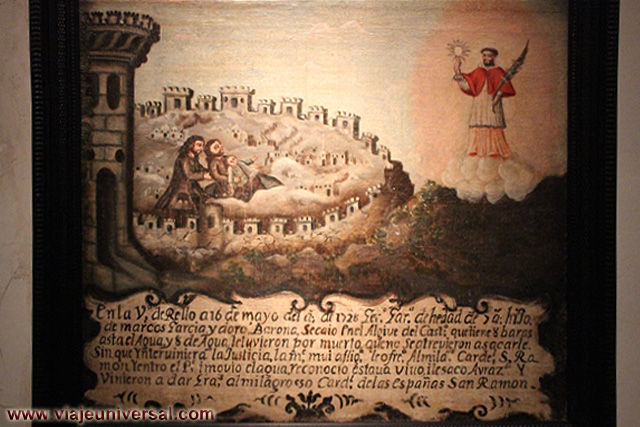 En la Vª. de Rello a 16 de mayo del aº. de 1728 Fco. Gar. de hedad de 7 aº. hijo
de marcos Garcia y doro. Barona, Secaio Enel Algive del Casti. qetiene 8 baras
asta el Agua, y 8 de Agua, le tuvieron por muerto, qeno Seatrevieron a sacarle.
Sin que Ynterviniera la Justicia, la me. mui aflig. le ofre. Almila. Carde. S. Ra-
mon, Yentro el Pe. imovio el agua, y reconocio estaua vivo, i le saco Avraz. Y
Vinieron a dar Gra. al milagrosso Card. de las Españas San Ramon.
www.viajeuniversal.com